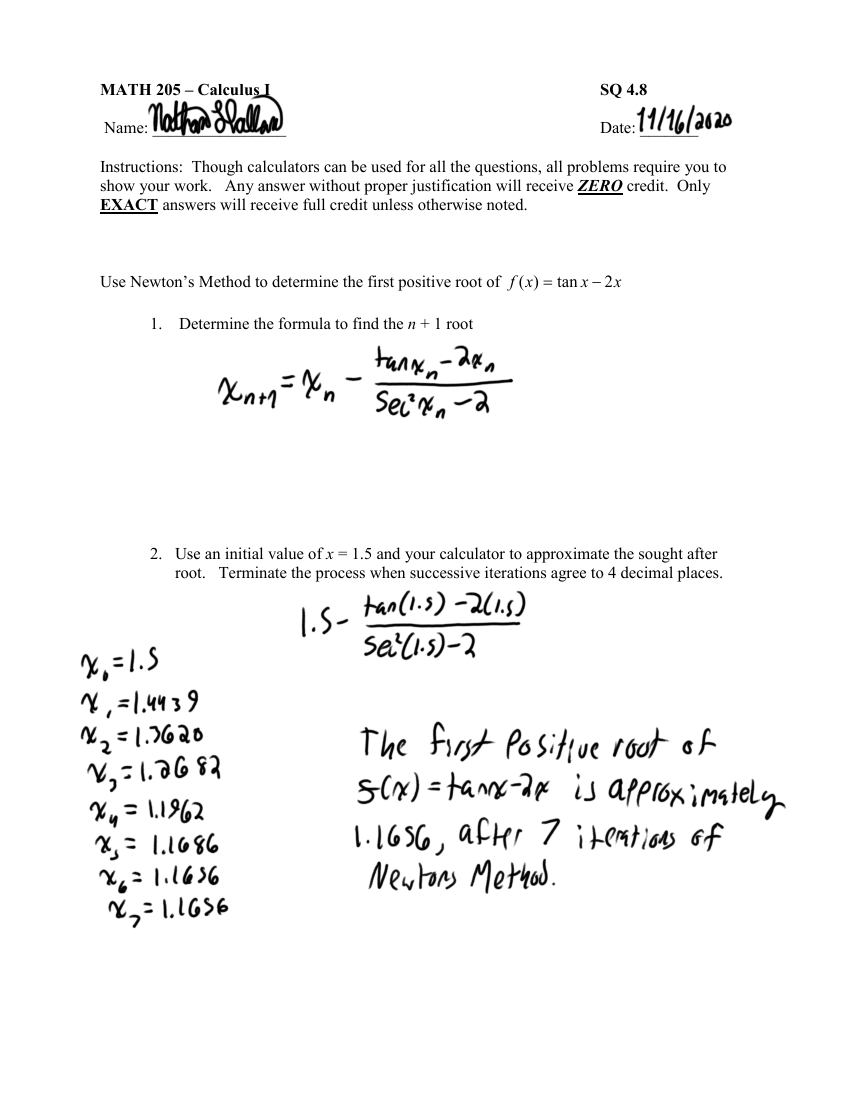 MATH 205 – Calculus I SQ 4.8
Name: Nathan Hallan Date: 11/16/2020
Instructions: Though calculators can be used for all the questions, all problems require you to
show your work. Any answer without proper justification will receive ZERO credit. Only
EXACT answers will receive full credit unless otherwise noted.
Use Newton's Method to determine the first positive root of f(x) = tan x − 2x
1. Determine the formula to find the n + 1 root
xₙ₊₁ = xₙ − (tan xₙ − 2xₙ)/(sec² xₙ − 2)
2. Use an initial value of x = 1.5 and your calculator to approximate the sought after
root. Terminate the process when successive iterations agree to 4 decimal places.
1.5 − (tan(1.5) − 2(1.5))/(sec²(1.5) − 2)
x₀ = 1.5
x₁ = 1.4439
x₂ = 1.3620
x₃ = 1.2682
x₄ = 1.1962
x₅ = 1.1686
x₆ = 1.1656
x₇ = 1.1656
The first positive root of
f(x) = tanx − 2x is approximately
1.1656, after 7 iterations of
Newtons Method.